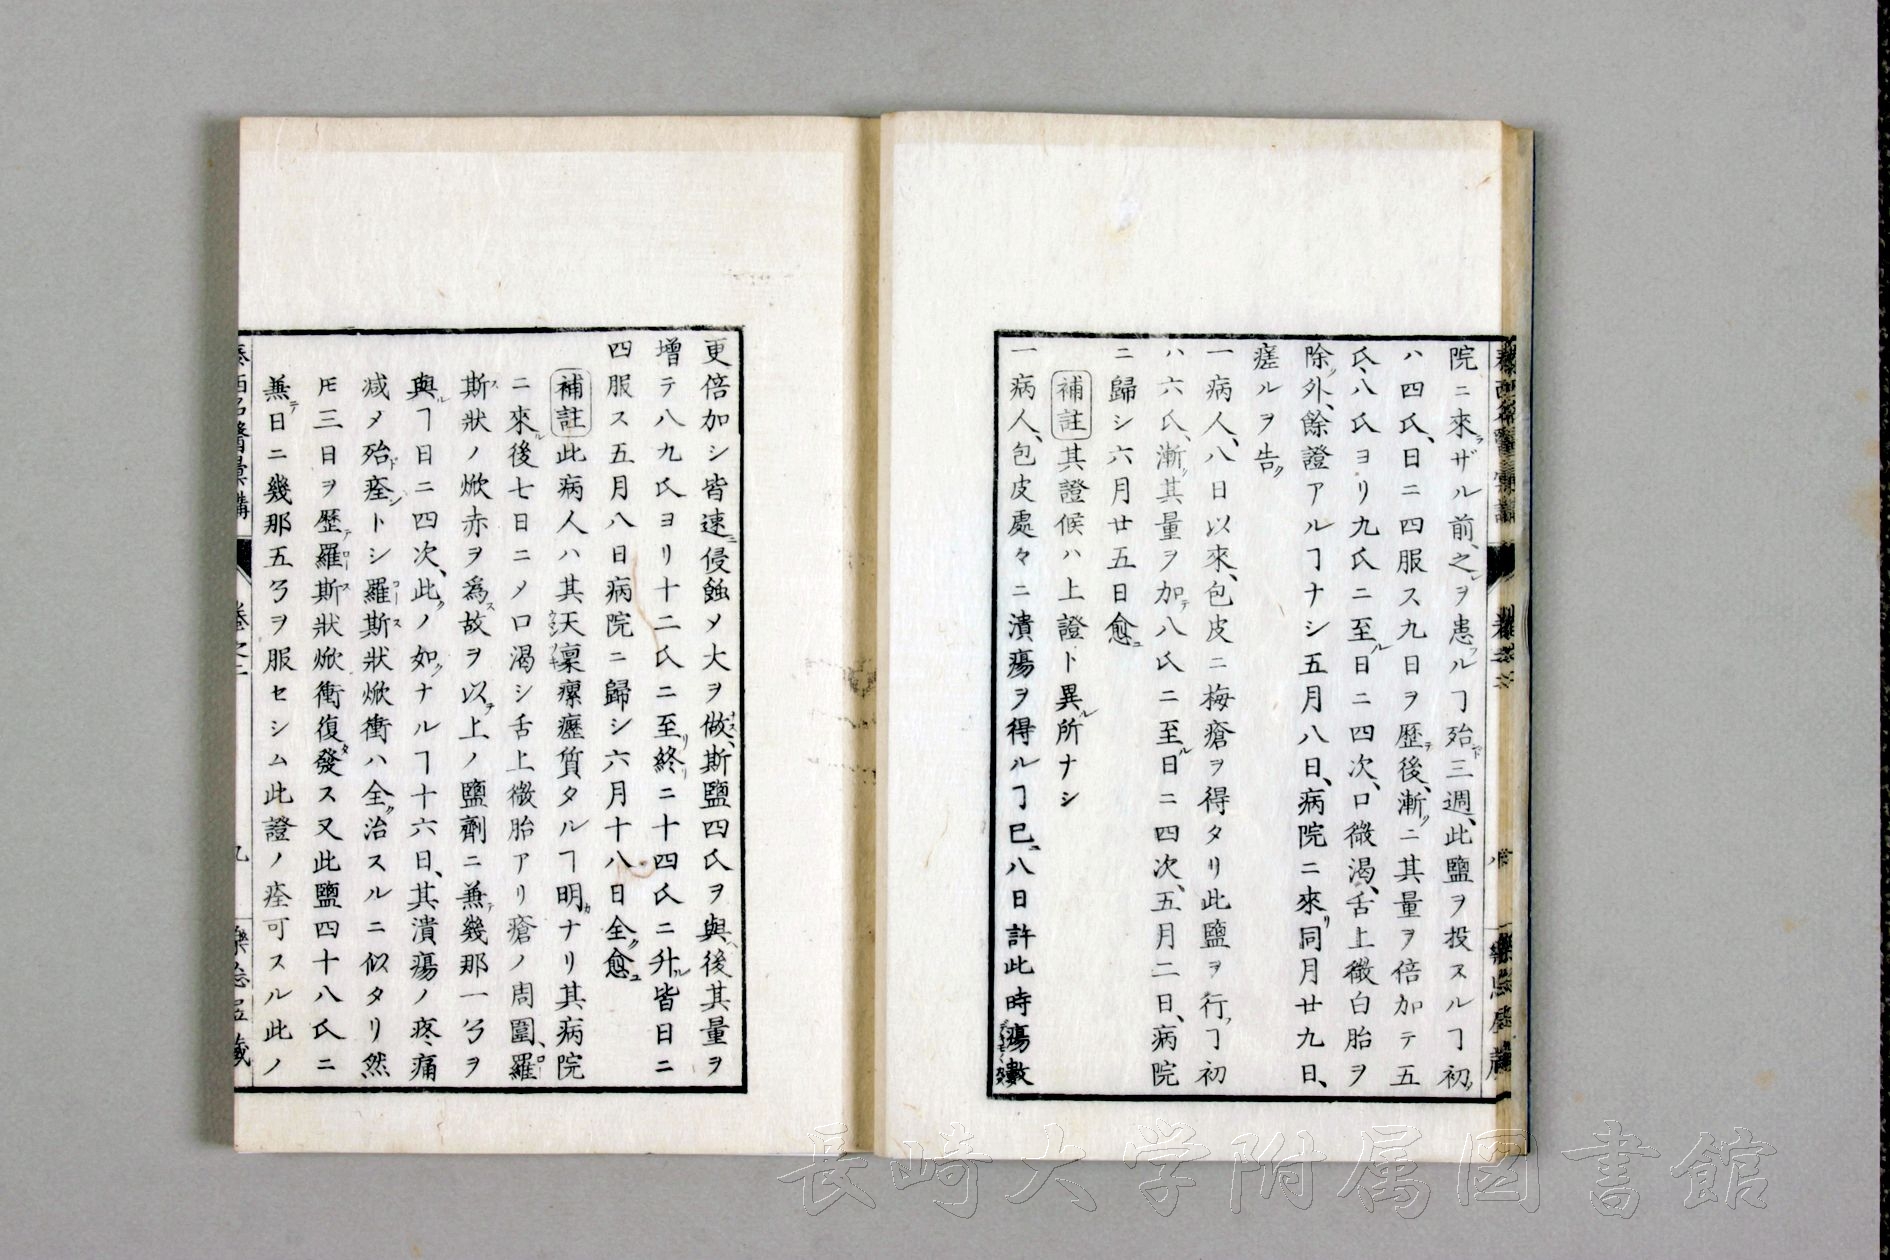 院ニ來ラザル前、之ヲ患フルヿ殆ド三週、此鹽ヲ投スルヿ初メ
ハ四氏、日ニ四服ス九日ヲ歷テ後、漸クニ其量ヲ倍加テ五
氏、八氏ヨリ九氏ニ至ル日ニ四次、口微渴、舌上微白胎ヲ
除ノ外、餘證アルヿナシ五月八日、病院ニ來リ同月廿九日、
瘥ルヲ告ク
一病人、八日以來、包皮ニ梅瘡ヲ得タリ此鹽ヲ行フヿ初
ハ六氏、漸ク其量ヲ加テ八氏ニ至ル日ニ四次、五月二日、病院
ニ歸シ六月廿五日愈ユ
補註其證候ハ上證ト異ル所ナシ
一病人、包皮處々ニ潰瘍ヲ得ルヿ已ニ八日許此時瘍數
更倍加シ皆速ニ侵蝕メ大ヲ做ス、斯鹽四氏ヲ與ヘ後其量ヲ
增テ八九氏ヨリ十二氏ニ至リ終リニ十四氏ニ升ル皆日ニ
四服ス五月八日病院ニ歸シ六月十八日全ク愈ユ
補註此病人ハ其天稟瘰癧質タルヿ明カナリ其病院
ニ來ル後七日ニメ口渴シ舌上微胎アリ瘡ノ周圍、羅
斯狀ノ焮赤ヲ爲ス故ヲ以テ上ノ鹽劑ニ兼テ幾那一ゟヲ
與ルヿ日ニ四次、此ノ如クナルヿ十六日、其潰瘍ノ疼痛
減メ殆ド痊シトシ羅斯狀焮衝ハ全ク治スルニ似タリ然
𪜈三日ヲ歷テ羅斯狀焮衝復タ發ス又此鹽四十八氏ニ
兼テ日ニ幾那五ゟヲ服セシム此證ノ痊可スル此ノ
泰西名醫彙講
卷之二
九
長崎大学附属図書館